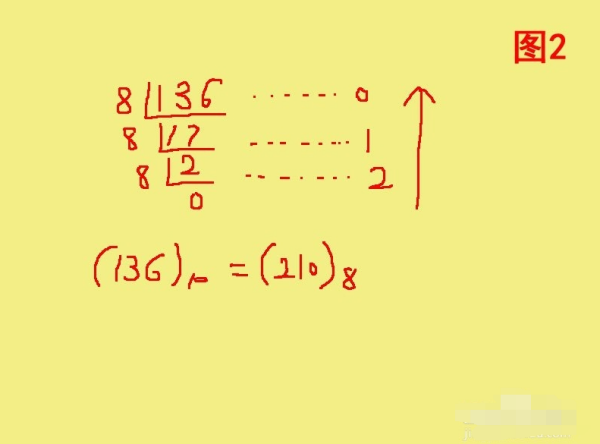 图2
8 136 ······· 0
8 17 ······· 1
8 2 ······· 2
0
(136)₁₀ = (210)₈